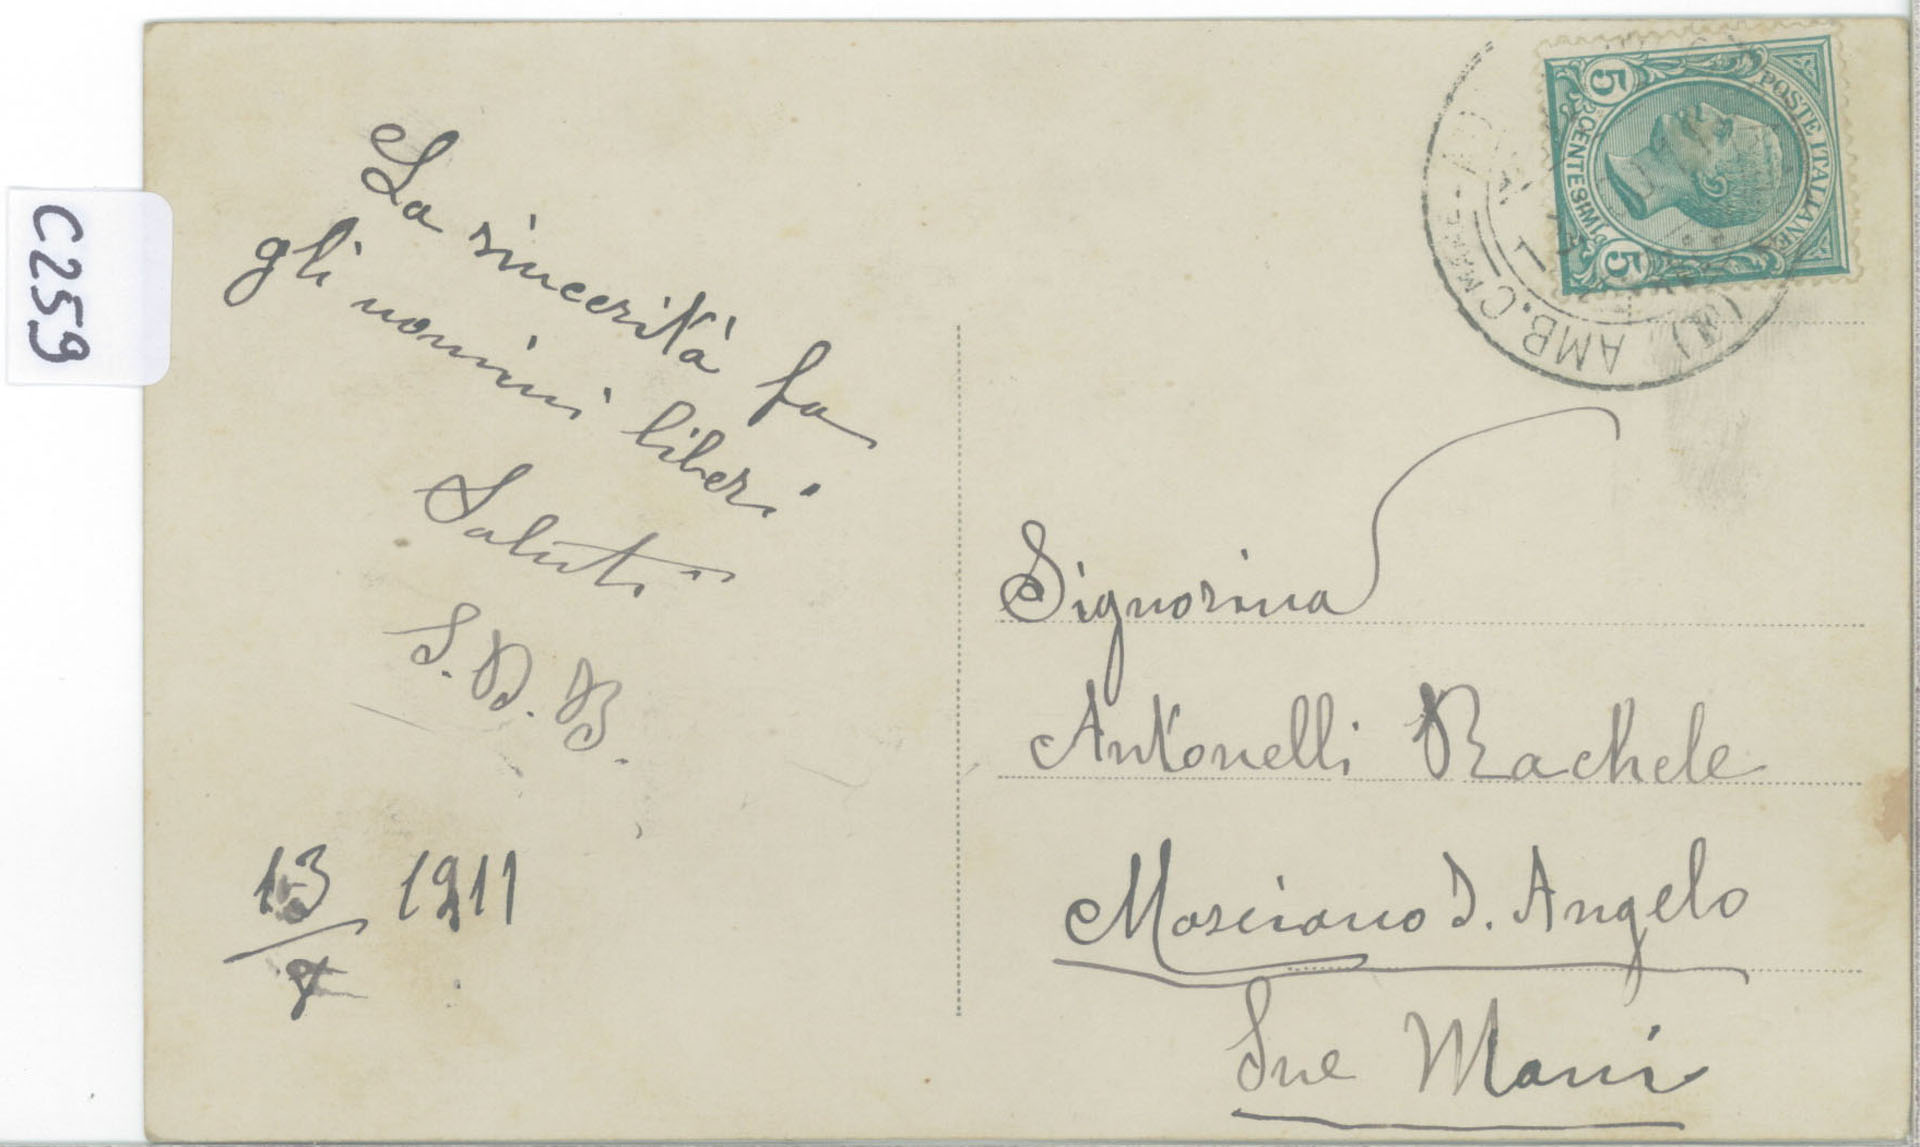 C259
La sincerità fa
gli uomini liberi
Saluti
S.D.B.
13/7 1911
POSTE ITALIANE
CENTESIMI
5 5
AMB. C
(1)
Signorina
Antonelli Rachele
Mosciano S. Angelo
Sue Mani